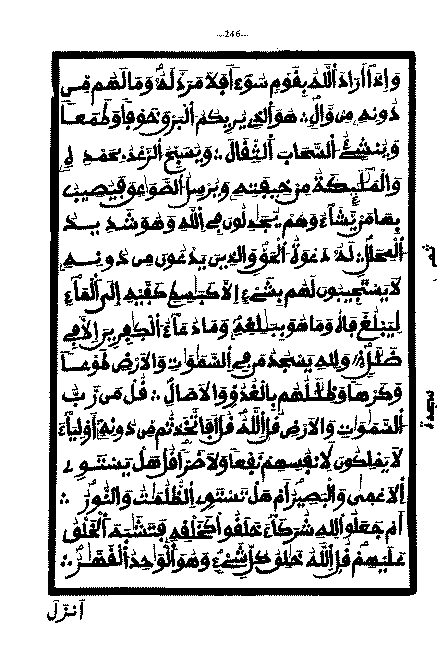 ...246...
وإذا أراد الله بقوم سوءا فلا مرد له وما لهم من
دونه من وال ∴ هو الذي يريكم البرق خوفا وطمعا
وينشئ السحاب الثقال ∴ ويسبح الرعد بحمده
والملئكة من خيفته ويرسل الصواعق فيصيب
بها من يشاء وهم يجدلون في الله وهو شديد
المحال ∴ له دعوة الحق والذين يدعون من دونه
ثمن
لا يستجيبون لهم بشيء إلا كبسط كفيه إلى الماء
ليبلغ فاه وما هو ببلغه وما دعاء الكفرين إلا في
ضلل ∴ ولله يسجد من في السموت والارض طوعا
وكرها وظللهم بالغدو والاصال ∴ قل من رب
سجدة
السموت والارض قل الله قل افاتخذتم من دونه أولياء
لا يملكون لانفسهم نفعا ولا ضرا قل هل يستوي
الاعمى والبصير ام هل تستوي الظلمت والنور ∴
ام جعلوا لله شركاء خلقوا كخلقه فتشبه الخلق
عليهم قل الله خلق كل شيء وهو الوحد القهر ∴
انزل